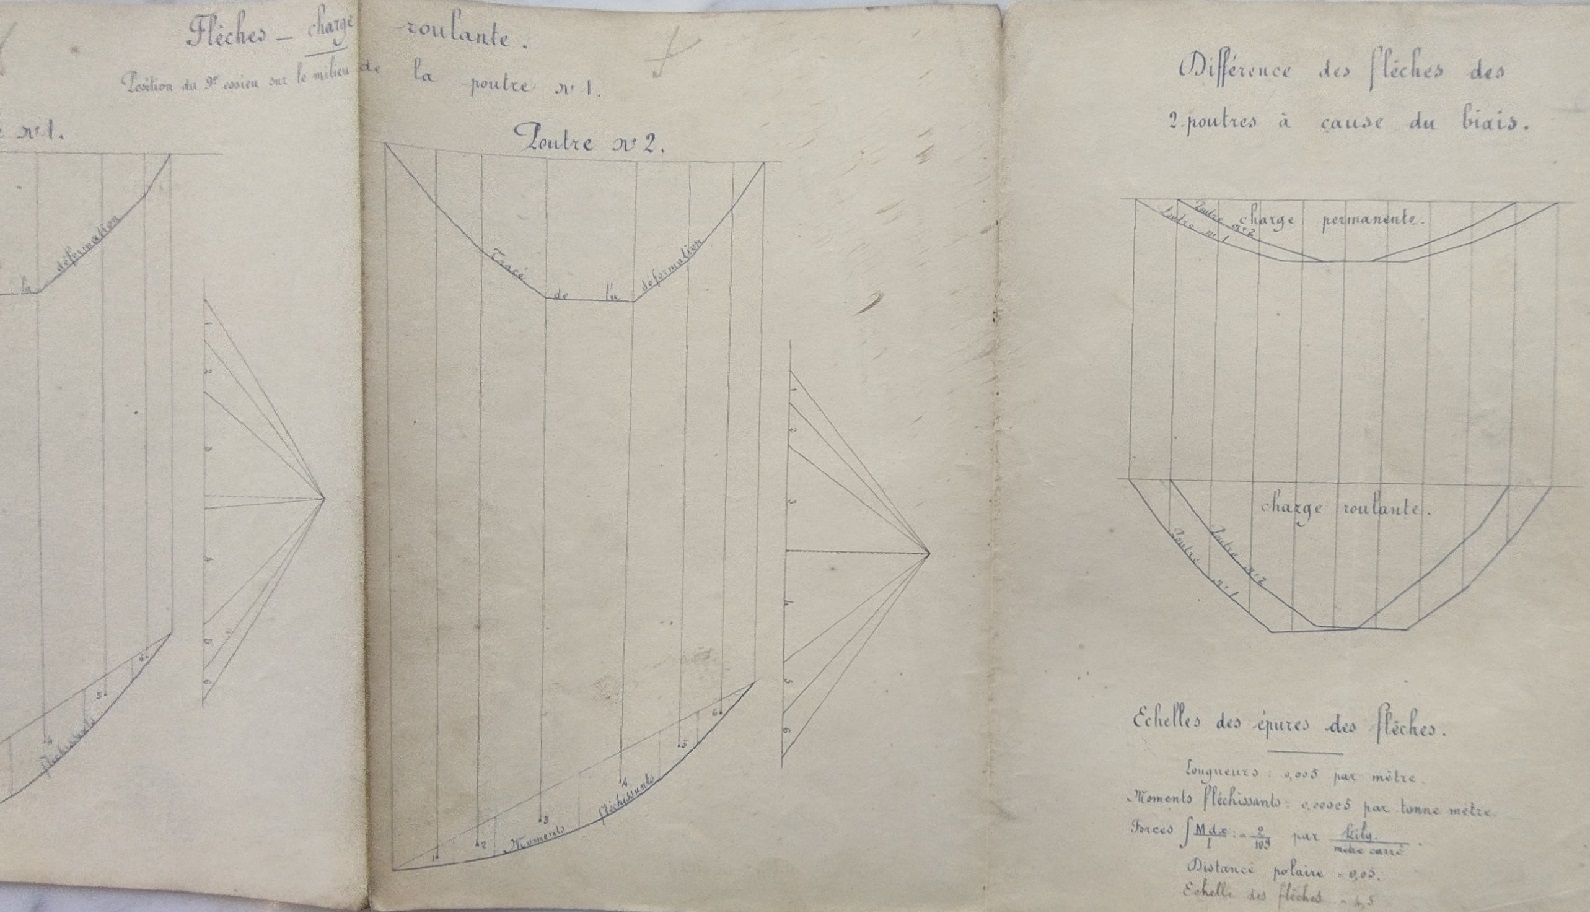 Flèches _ charge roulante.
Position du 9e essieu sur le milieu de la poutre No 1.
No 1.
la déformation
1
2
3
4
5
6
4
5
6
fléchissants
Poutre No 2.
Tracé de la déformation
1
2
3
4
5
6
1
2
3
4
5
6
Moments fléchissants
Différence des flèches des
2 poutres à cause du biais.
Poutre No 2
Poutre No 1
charge permanente.
charge roulante.
Poutre No 2
Poutre No 1
Echelles des épures des flèches.
Longueurs : 0,005 par mètre.
Moments fléchissants : par tonne mètre.
Forces ∫ M dx / I : = 2 / 10⁹ par kilg. / mètre carré
Distance polaire = 0,05.
Echelle des flèches =